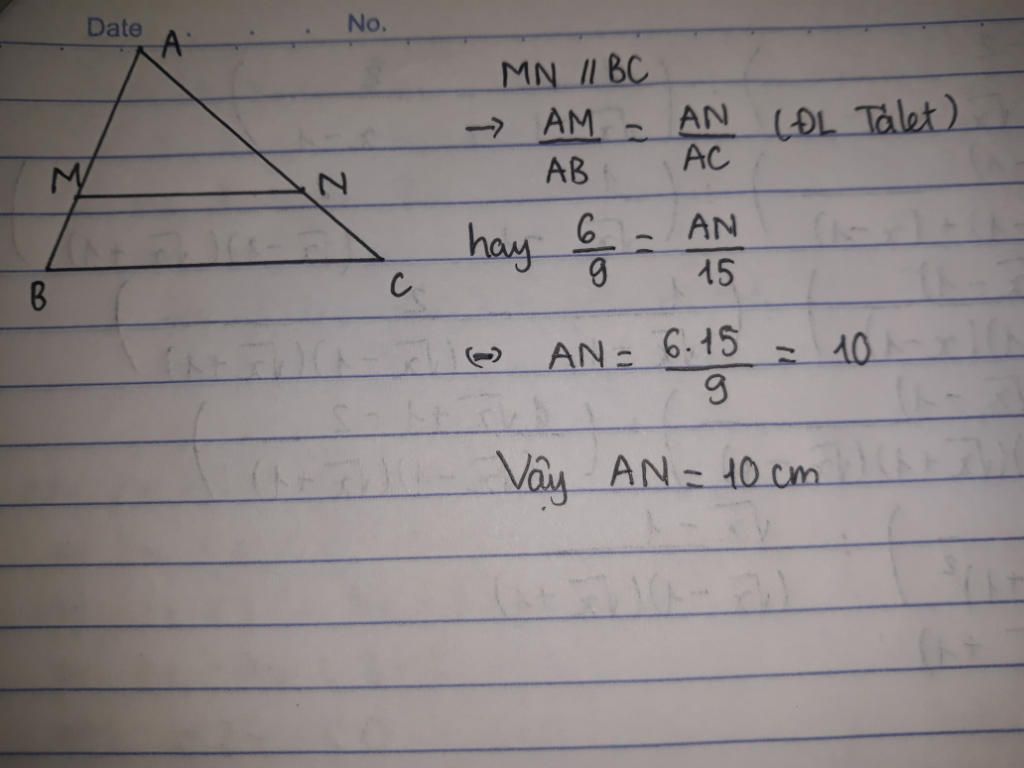 Date No.
A
M N
B C
MN // BC
→ AM/AB = AN/AC (ĐL Talet)
hay 6/9 = AN/15
↔ AN = 6.15/9 = 10
Vậy AN = 10 cm